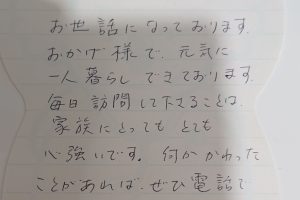 お世話になっております。
おかげ様で、元気に
一人暮らしできております。
毎日訪問して下さることは、
家族にとってもとても
心強いです。何かかわった
ことがあれば、ぜひ電話で